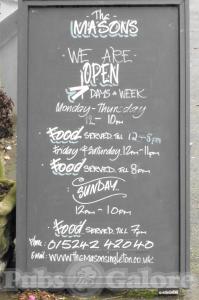 The
MASONS
WE ARE
OPEN
7 DAYS A WEEK
Monday - Thursday
12 - 10pm
Food SERVED TILL 12-8pm
Friday & Saturday 12pm-11pm
Food SERVED TILL 8pm
SUNDAY
12pm - 10pm
Food SERVED TILL 7pm
01524242040
www.themasonsingleton.co.uk
Pubs Galore